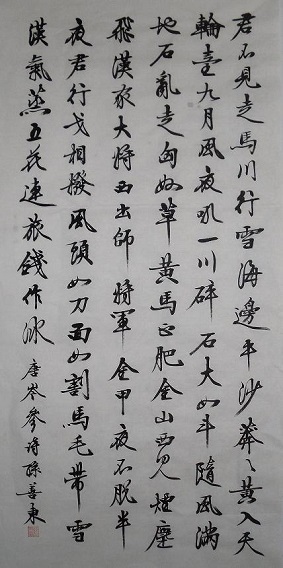 君不見走馬川行雪海邊平沙莽々黄入天
輪臺九月風夜吼一川碎石大如斗隨風滿
地石亂走匈奴草黄馬正肥金山西見煙塵
飛漢家大將西出師將軍金甲夜不脱半
夜君行戈相撥風頭如刀面如割馬毛帶雪
漢氣蒸五花連旋錢作冰
唐岑參詩孫善東